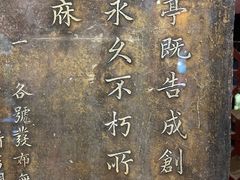 亭既告成創
永久不朽所
庥
一各號發布無